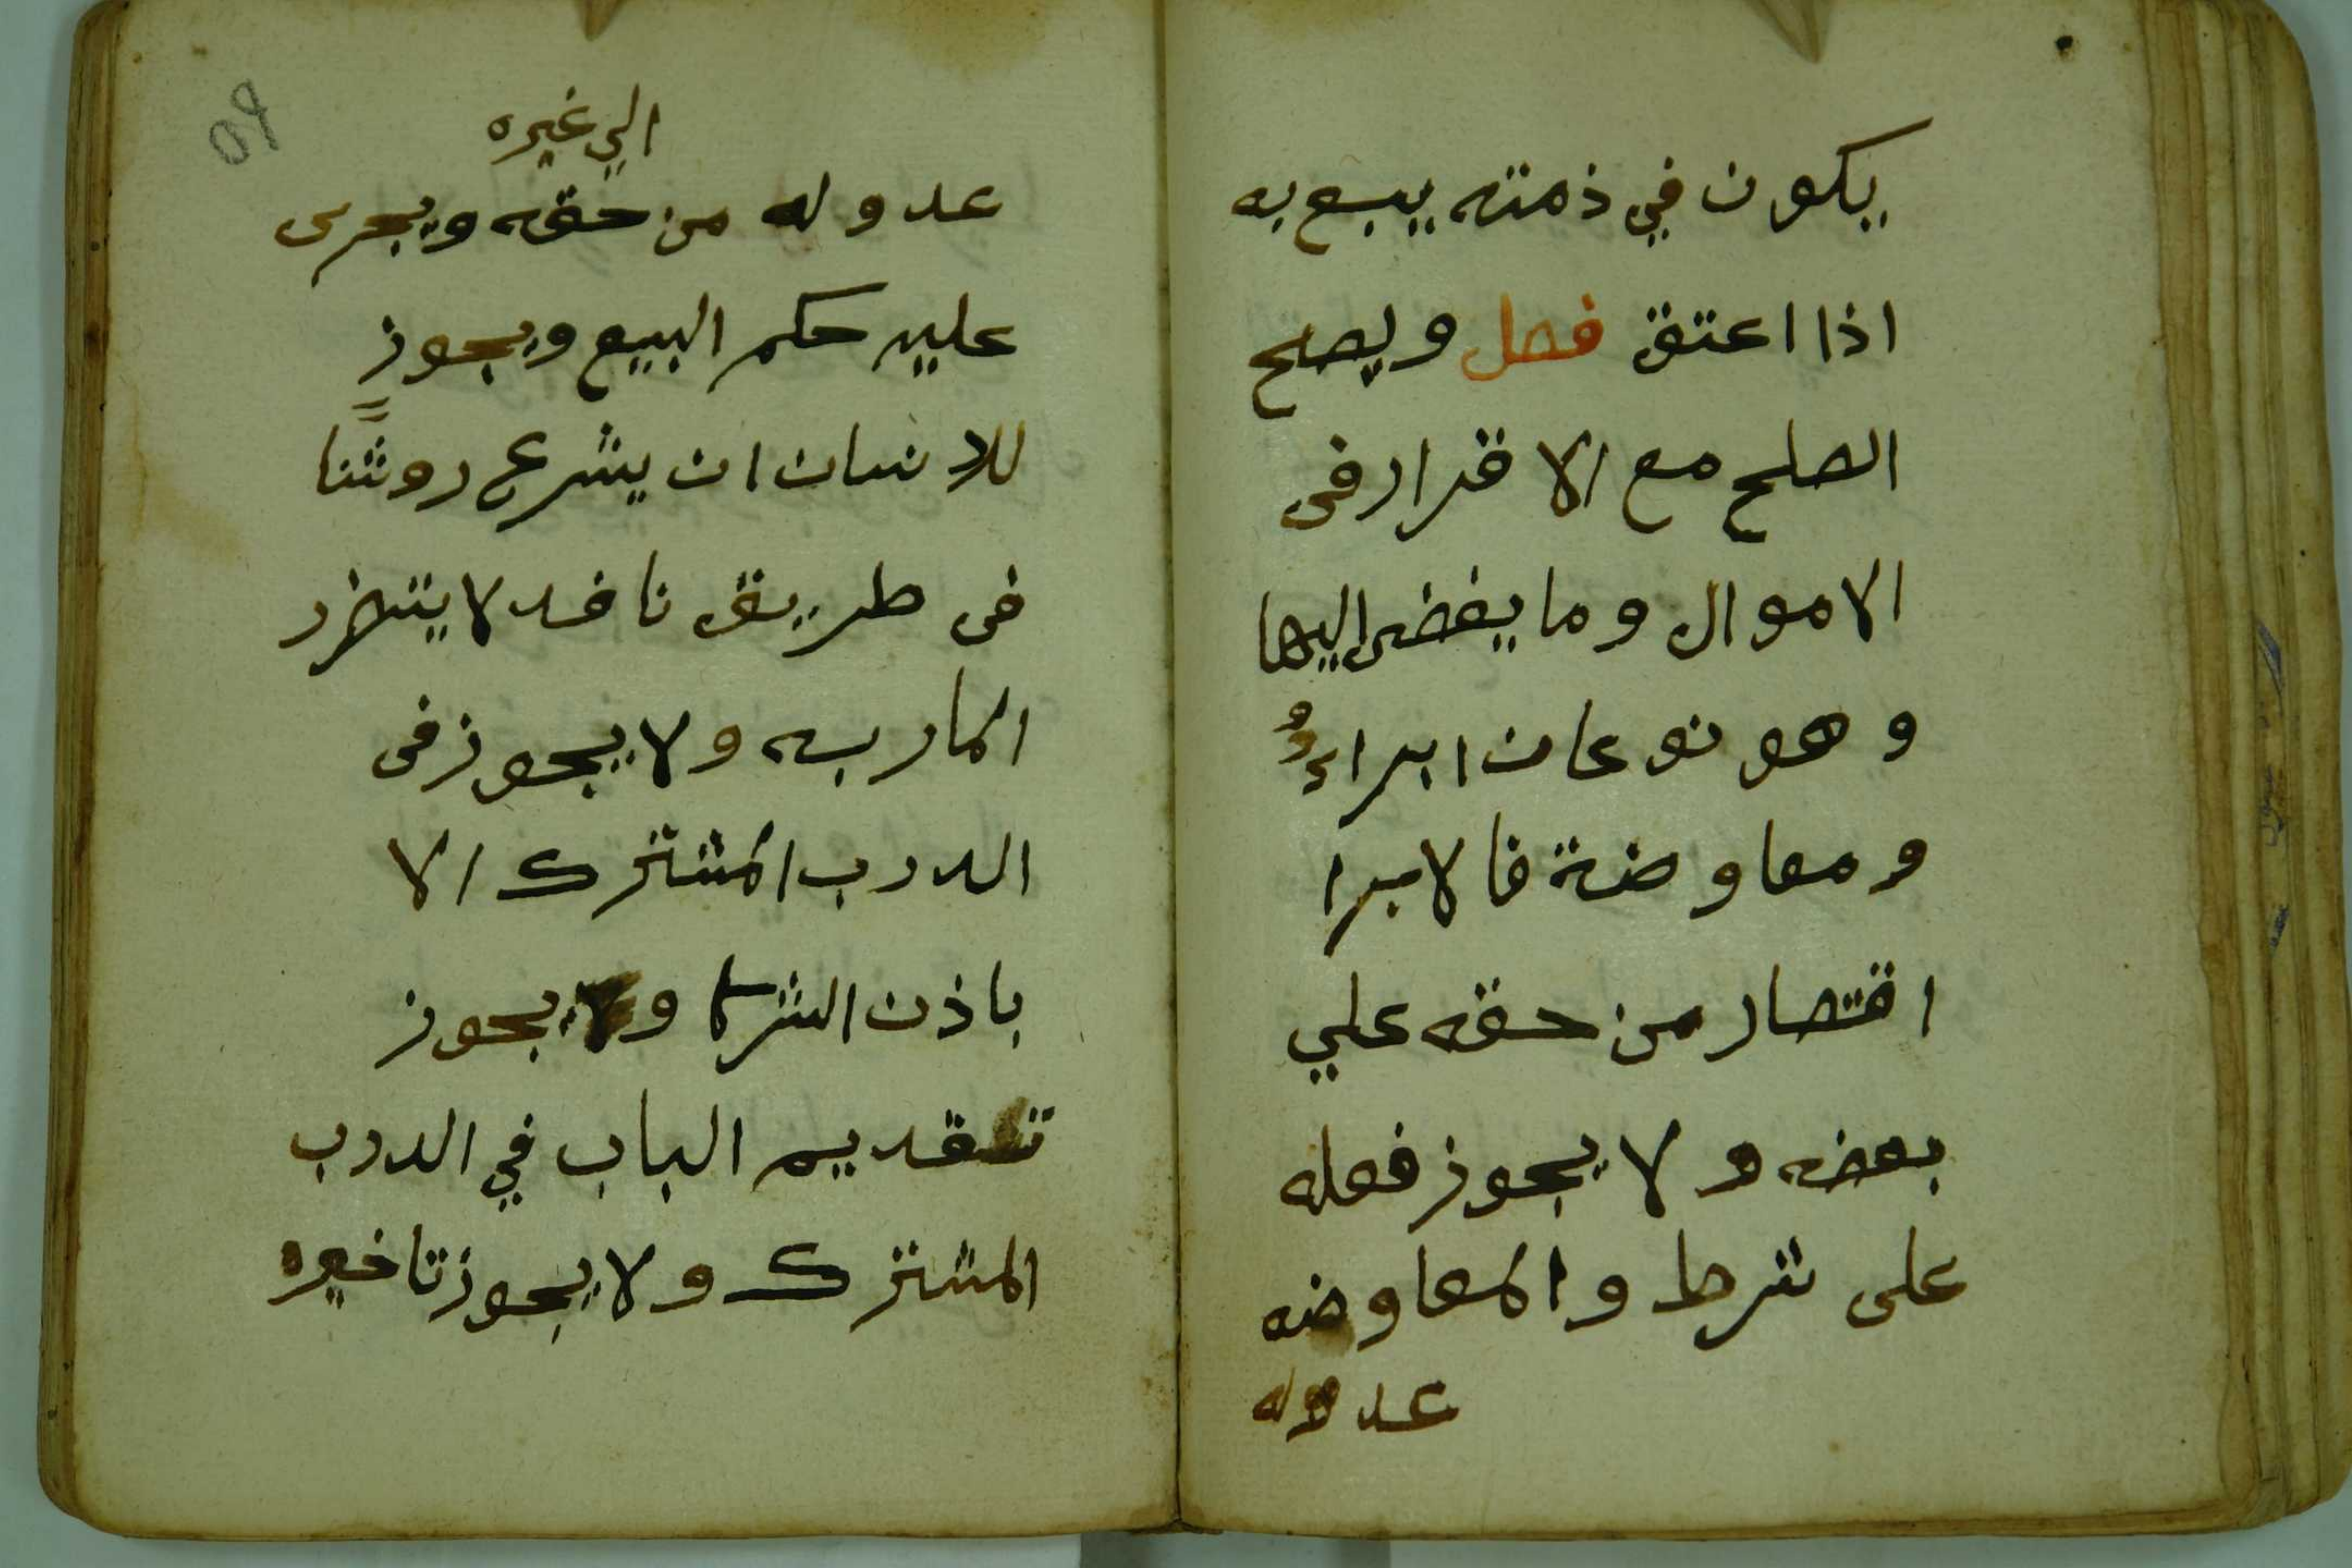 يكون في ذمته يبتع به
اذا اعتق فصل ويصح
الصلح مع الاقرار في
الاموال وما يفضى اليها
وهو نوعان ابراءٌ
ومعاوضة فالابرا
اقتصار من حقه علي
بعضه ولا يجوز فعله
على شرط والمعاوضه
عدوله
٥٩
الي غيره
عدوله من حقه ويجرى
عليه حكم البيع ويجوز
للانسان ان يشرع روشنًا
فى طريق نافد لا يتضرر
المار به ولا يجوز فى
الدرب المشترك الا
باذن الشركا ولا يجوز
تقديم الباب في الدرب
المشترك ولا يجوز تاخيره